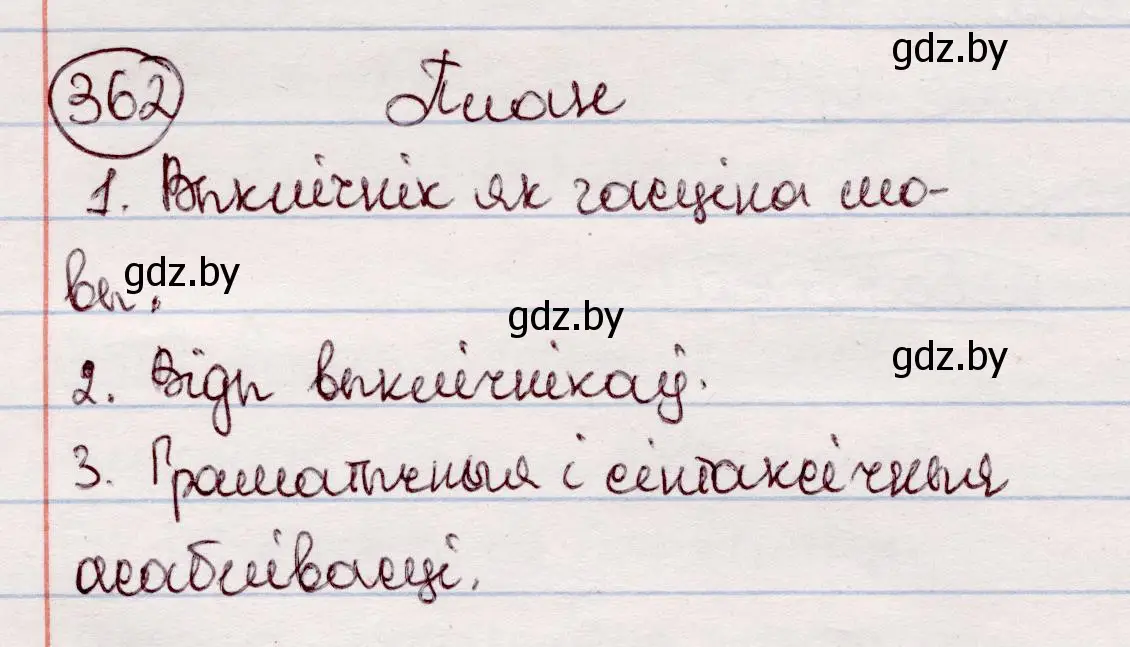 gdz.by
362 План
1. Выклічнік як часціна мо-
вы.
gdz.by
gdz.by
gdz.by
2. Віды выклічнікаў.
3. Граматычныя і сінтаксічныя
асаблівасці.